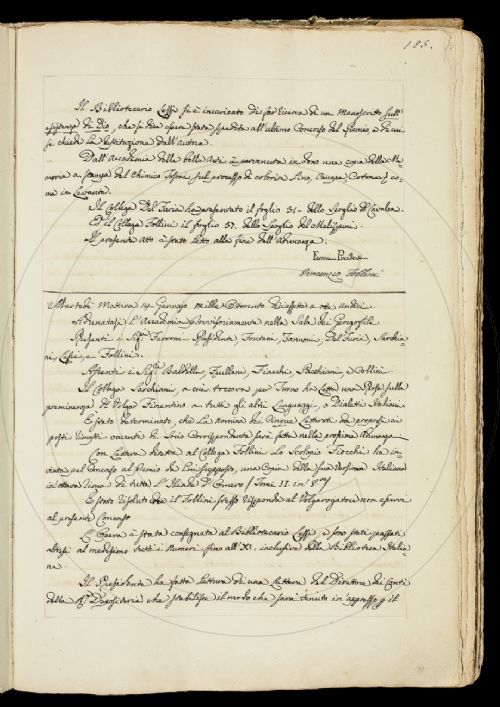 185.
Il Bibliotecario Zeffi si è incaricato di far ricerca di un Manoscritto sull'
esistenza di Dio, che si dice essere stato spedito all'ultimo Concorso del Premio, e di cui
si chiede la restituzione dall'autore.
Dall'Accademia delle belle Arti è pervenuta in dono una copia della Me
moria a stampa del Chimico Tesini sul processo di colorir Lino, Canapa, Cotone &c. co
me in Levante.
Il Collega Del Furia ha presentato il foglio 31. dello Spoglio del Cavalca.
Ed il Collega Follini il foglio 37. dello Spoglio del Malispini.
Il presente Atto è stato letto alla fine dell'Adunanza.
Ferroni Presidente
Vincenzio Follini
Martedì Mattina 14 Gennajo mille Ottocento diciassette a ore undici.
Adunatasi l'Accademia provvisoriamente nella Sala dei Georgofili
Presenti i Sigg. Ferroni Presidente, Fontani, Zannoni, Del Furia, Sarchia-
ni, Zeffi, e Follini.
Assenti i Sigg. Baldelli, Fiacchi, e
Il Collega Sarchiani, a cui toccava per Turno ha letto una Prosa sulla
preminenza del Volgar Fiorentino a tutti gli altri Linguaggi, o Dialetti Italiani.
È stato determinato, che la nomina dei Cinque Letterati da proporsi ai
posti rimasti vacanti di Socio Corrispondente sarà fatta nella prossima Adunanza
Con Lettera diretta al Collega Follini Lo Scolopio Fiocchi ha in
viato pel Concorso al premio da Lui supposto, una Copia della sua Versione Italiana
in ottava rima di tutta l'Iliade d'Omero / Tomi II. in 8.vo /
È stato risoluto che il Follini stesso risponda al Volgarizzatore non esservi
al presente Concorso
L'Opera è stata consegnata al Bibliotecario Zeffi, e sono stati passati
altresì al medesimo tutti i Numeri fino all'XI. inclusive della Biblioteca Italia
na.
Il Presidente ha fatto lettura di una lettera del Direttore dei Conti
della R. Depositeria che stabilisce il modo che sarà tenuto in appresso p. il